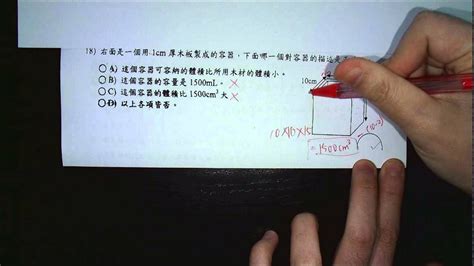 18) 右面是一個用 1cm 厚木板製成的容器,下面哪一個對容器的描述是
A) 這個容器可容納的體積比所用木材的體積小。
10cm
B) 這個容器的容量是 1500mL。×
C) 這個容器的體積比 1500cm³ 大 ×
D) 以上各項皆否。
10×10×15
(10-2)
=1500cm³